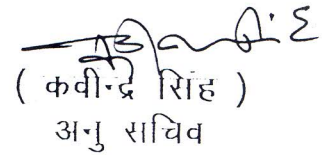 ( कवीन्द्र सिंह )
अनु सचिव